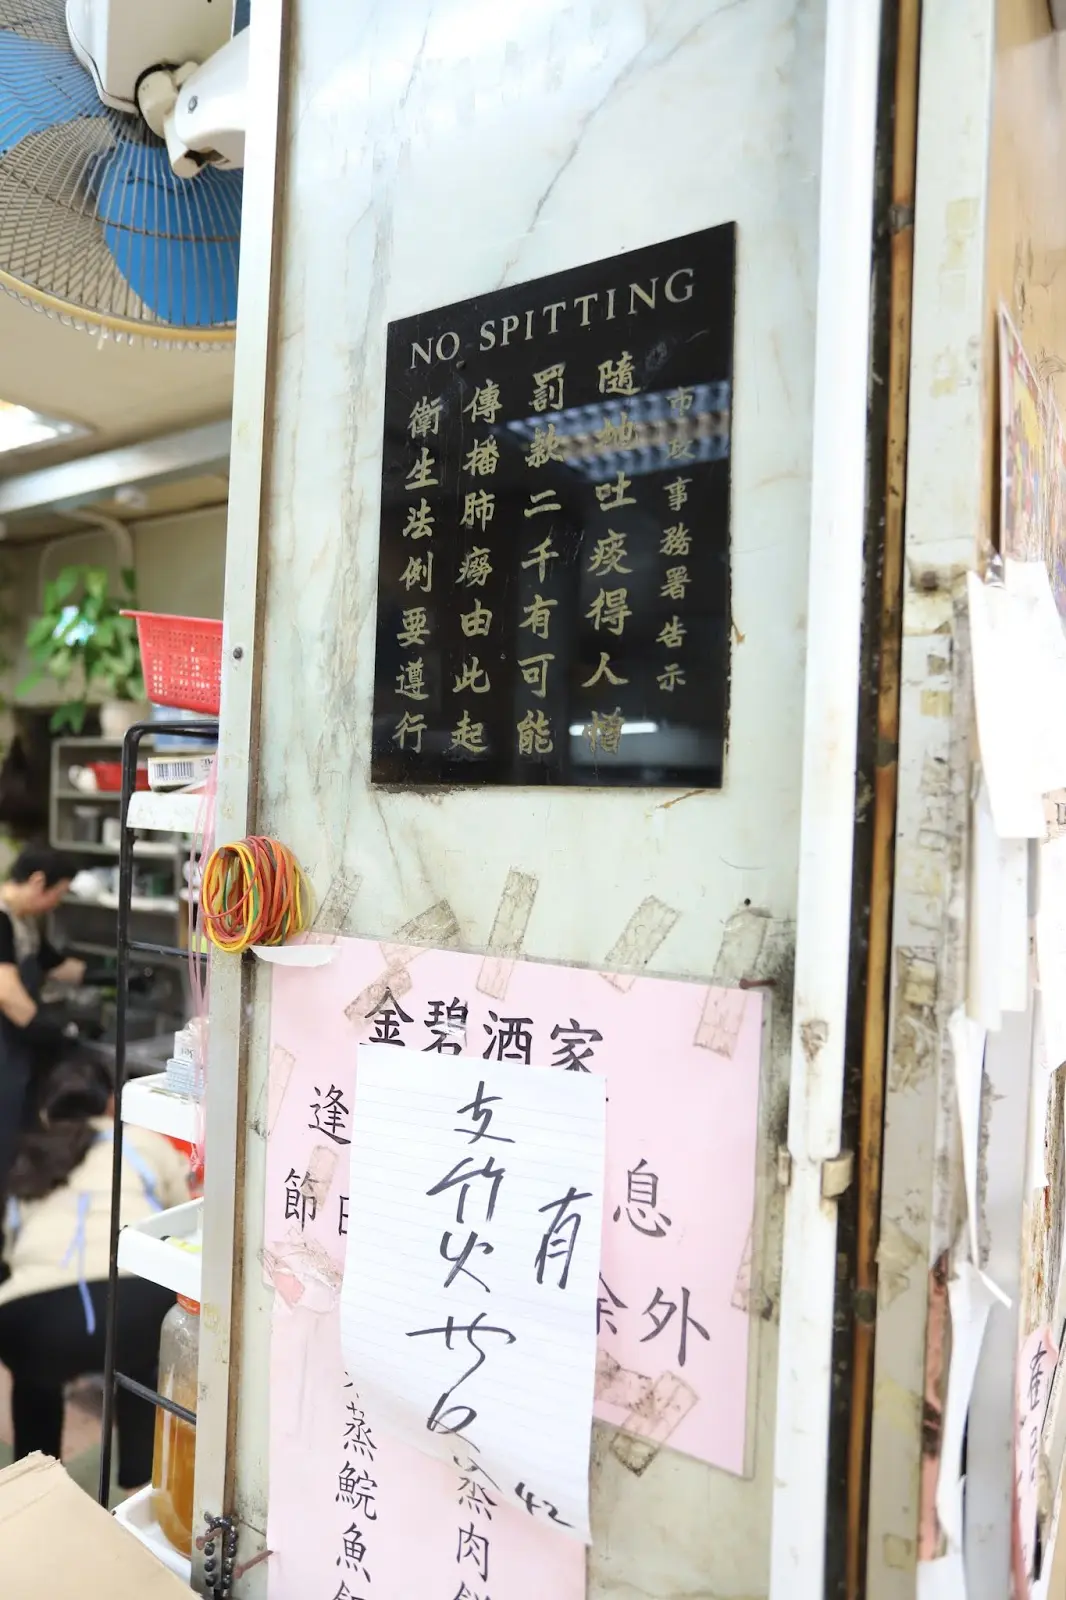 NO SPITTING
市政事務署告示
隨地吐痰得人憎
罰款二千有可能
傳播肺癆由此起
衛生法例要遵行
金碧酒家
逢
息
節日
除外
有
支竹火
42
蒸肉餅
蒸鯇魚